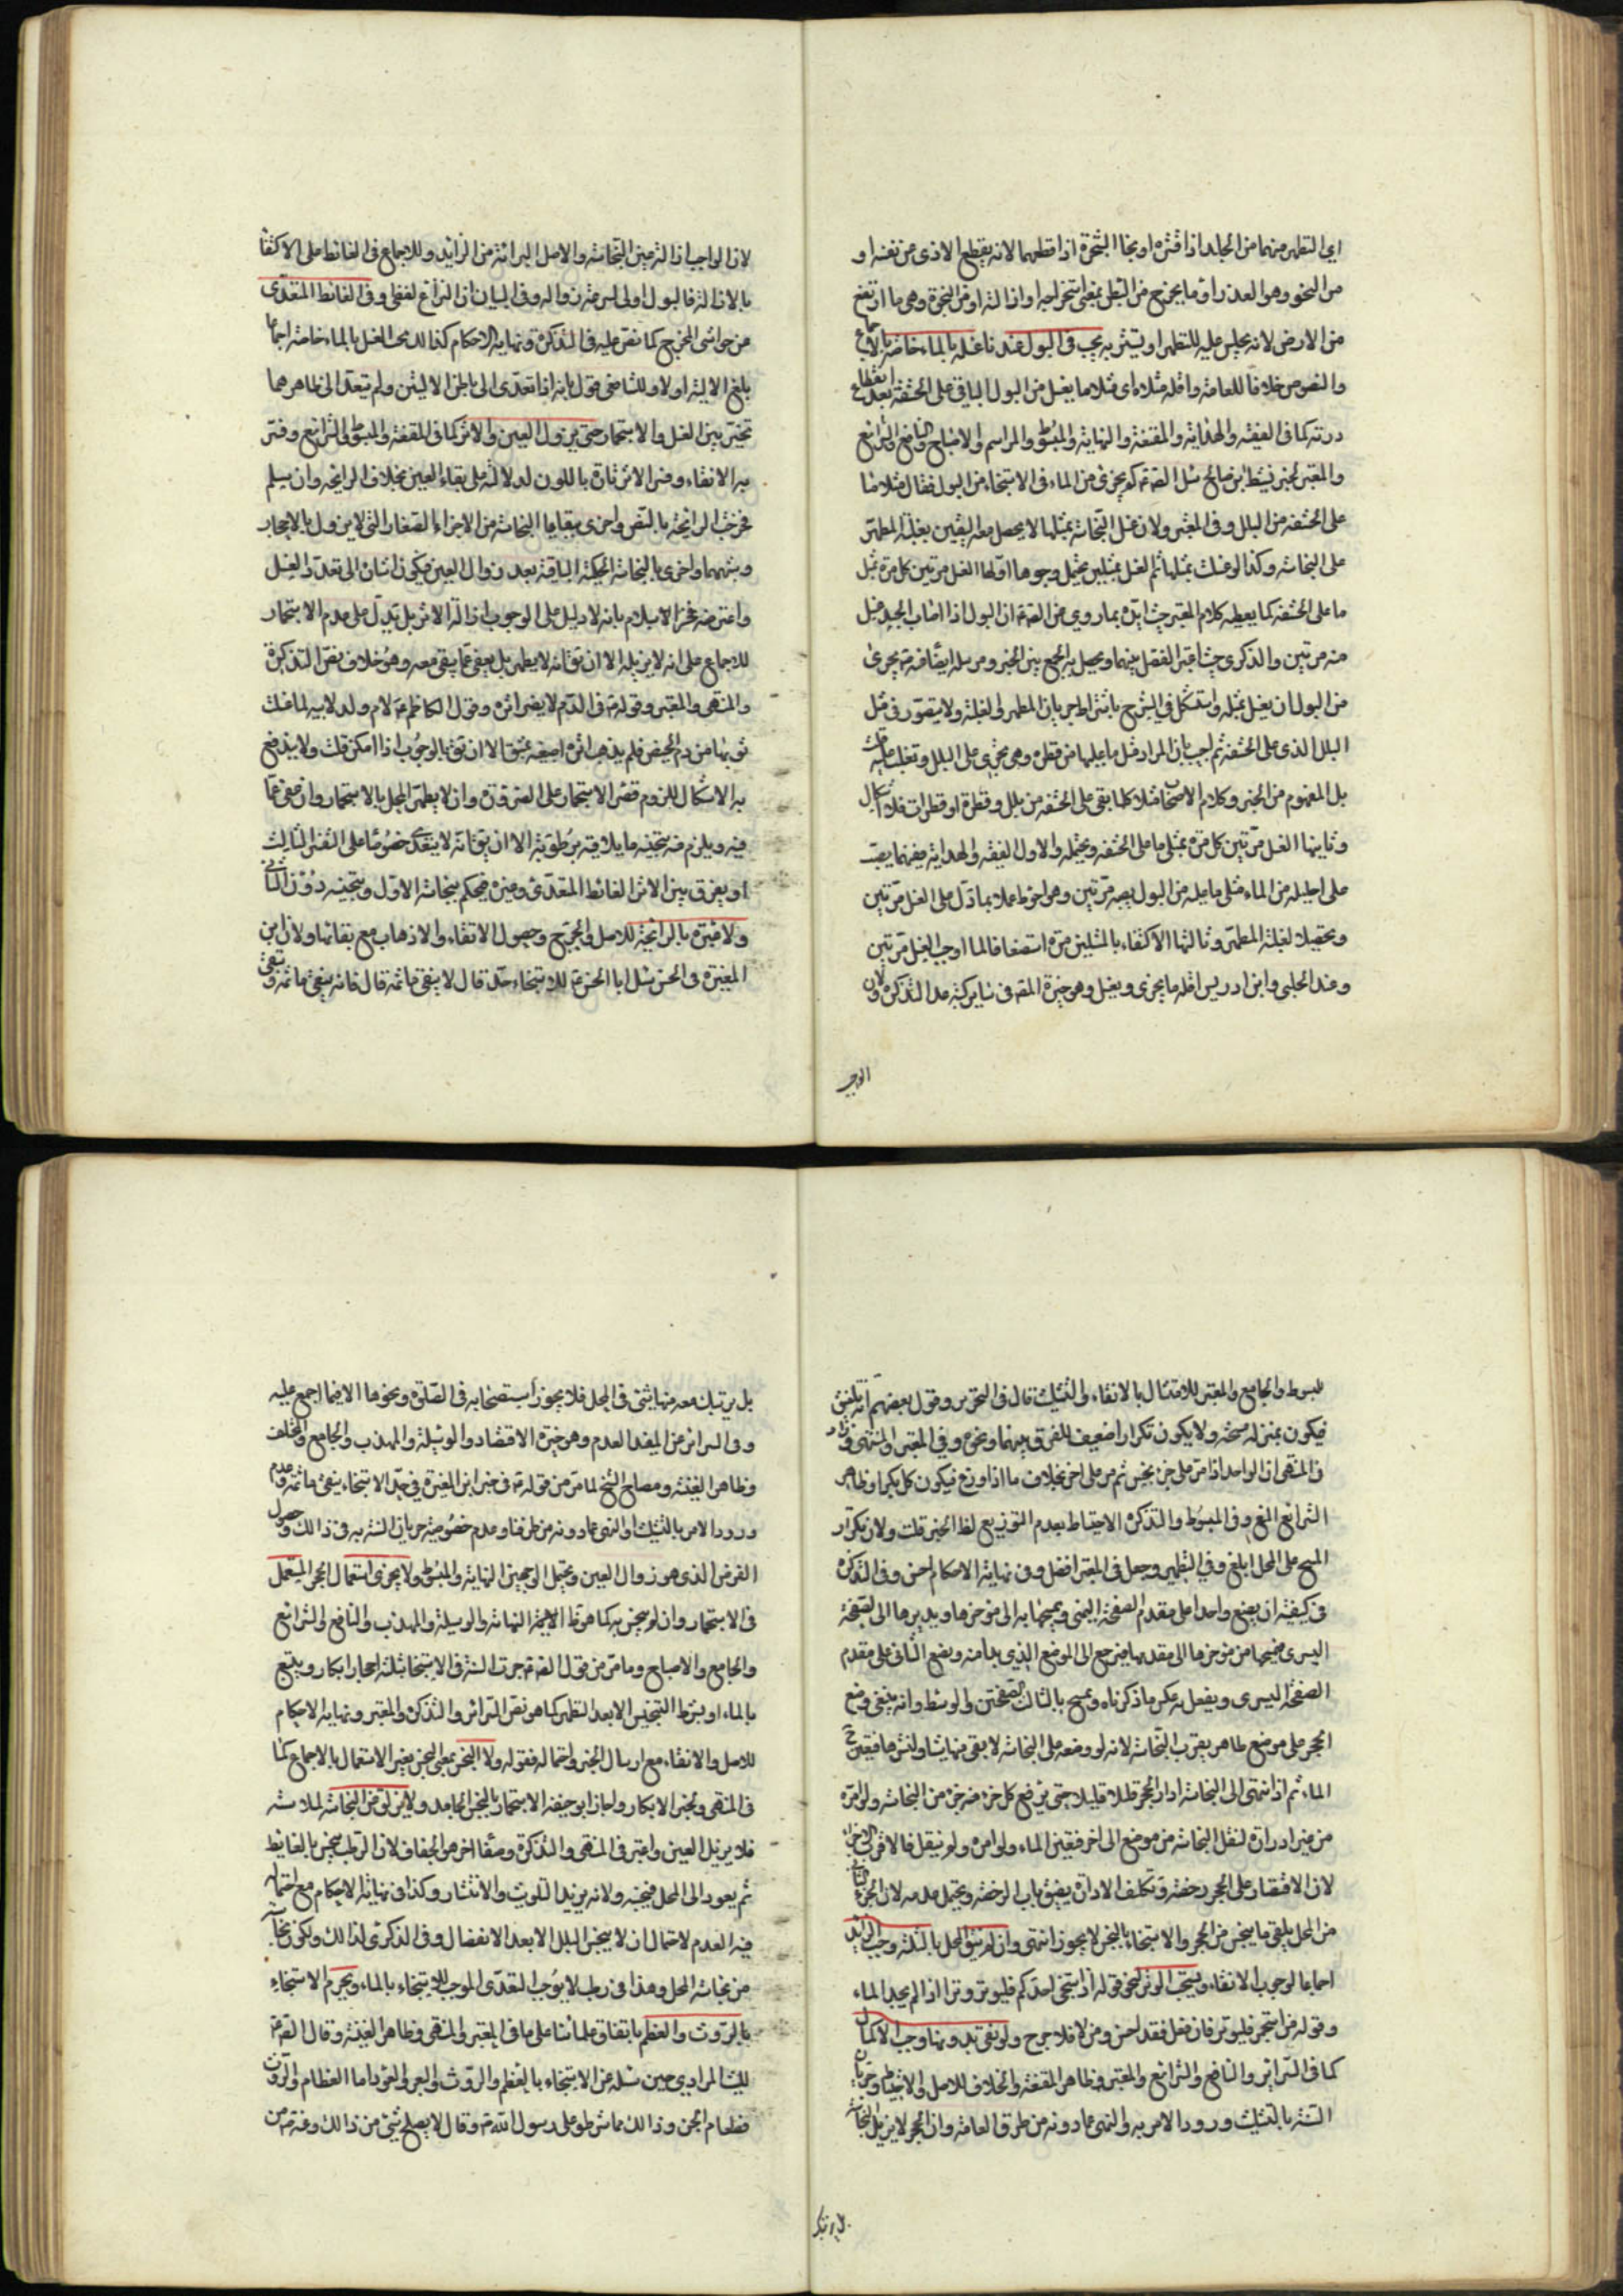 اي التطهر منهما من الجلد اذا قشره او نجا الشجرة اذا قطعها لانه يقطع الاذى من نفسه او
من النجو وهو العذرة او ما يخرج من البطن بمعنى استخراجه او ازالته او من النجوة وهي ما ارتفع
من الارض لانه يجلس عليه للتطهر او يستتر به يجب في البول عندنا غسله بالماء خاصة بالاجماع
والنصوص خلافا للعامة واقله مثلاه اي مثلا ما يغسل من البول الباقي على الحشفة بعد انقطاع
درته كما في الفقيه والهداية والمقنعة والنهاية والمبسوط والمراسم والاصباح والنافع والشرائع
والمعتبر لخبر نشيط بن صالح سئل الصادق كم يجزي من الماء في الاستنجاء من البول فقال مثلا ما
على الحشفة من البلل وفي المعتبر ولان غسل النجاسة بمثلها لا يحصل معه اليقين بغلبة المطهر
على النجاسة وكذا لو غسلت بمثلها ثم الغسل بمثلين يحتمل وجوها اولها الغسل مرتين كل مرة بمثل
ما على الحشفة كما يعطيه كلام المعتبر حيث ايده بما روي من الصادق ان البول اذا اصاب الجسد غسل
منه مرتين والذكرى حيث اعتبر الفصل بينهما ويحصل به الجمع بين الخبر ومرسله ايضا قد يجزي
من البول ان يغسل بمثله واستشكل في الشرح باشتراط جريان المطهر لغلبته ولا يتصور في مثل
البلل الذي على الحشفة ثم اجيب بان المراد مثل ما عليها من قطرة وهي تجري على البلل وتغلب عليه قلت
بل المفهوم من الخبر وكلام الاصحاب مثلا كلما بقي على الحشفة من بلل وقطرة او قطرات فلا اشكال
وثانيها الغسل مرتين كل مرة بمثلي ما على الحشفة ويحتمله والاول الفقيه والهداية ففيهما يصب
على احليله من الماء مثلي ما عليه من البول يصبه مرتين وهو احوط عملا بما دل على الغسل مرتين
وتحصيلا لغلبة المطهر وثالثها الاكتفاء بالمثلين مرة استضعافا لما اوجب الغسل مرتين
وعند الحلبي وابن ادريس اقله ما يجزي ويغسل وهو خيرة المصنف في سائر كتبه عدا التذكرة ولان
الواجب
لان الواجب ازالة عين النجاسة والاصل البراءة من الزائد وللاجماع في الغائط على الاكتفاء
بالازالة فالبول اولى لسرعة زواله وفي البيان ان النزاع لفظي وفي الغائط المتعدي
من حواشي المخرج كما نص عليه في التذكرة ونهاية الاحكام كذا لك يجب الغسل بالماء خاصة اجماعا
بلغ الالية او لا وللشافعي قول بانه اذا تعدى الى باطن الاليتين ولم يتعد الى ظاهرهما
تخير بين الغسل والاستجمار حتى يزول العين والاثر كما في المقنعة والمبسوط والشرائع وفسر
به الانقاء وفسر الاثر تارة باللون لدلالته على بقاء العين بخلاف الرائحة وان يسلم
فخرجت الرائحة بالنص واخرى ببقايا النجاسة من الاجزاء الصغار التي لا يزول بالاحجار
وشبهها واخرى بالنجاسة الحكمية الباقية بعد زوال العين فيكون اشارة الى تعدد الغسل
واعترضه فخر الاسلام بانه لا دليل على الوجوب ازالة الاثر بل يدل على عدم الاستجمار
للاجماع على انه لا يزيله الا ان يقال انه لا يطهر بل يعفى عما بقي معه وهو خلاف نص التذكرة
والمنتهى والمعتبر وقوله في الدم لا يضر اثره وقول الكاظم لام ولد لابيه لما غسلت
ثوبها من دم الحيض فلم يذهب اثره اصبغيه بمشق الا ان يقال بالوجوب اذا امكن قلت ولا يندفع
به الاشكال للزوم قصر الاستجمار على الضرورة وان لا يطهر المحل بالاستجمار وان عفي عما
فيه ويلزم منه تنجيسه ما يلاقيه برطوبته الا ان يقال انه لا يتعدى خصوصا على التفسير الثالث
او يفرق بين الاثر الغائط المتعدي وغيره فيحكم بنجاسة الاول وتنجيسه دون الثاني
ولا عبرة بالرائحة للاصل والحرج وحصول الانقاء والاذهاب مع بقائها ولان ابن
المغيرة في الحسن سئل ابا الحسن للاستنجاء حد قال لا ينقى ما ثمه قال فانه ينقى ما ثمه ويبقى
المبسوط والجامع والمعتبر للامتثال بالانقاء والتثليث قال في التحرير وقول بعضهم انه تلفيق
فيكون بمنزلة مسحة ولا يكون تكرار اضعيف للفرق بينهما ونحوه وفي المعتبر والمنتهى وزاد
في المنتهى ان الواحد اذا مر على جزء نجس ثم مر على اخر بخلاف ما اذا وزع فيكون كل بكرا وظاهر
الشرائع المنع وفي المبسوط والتذكرة الاحتياط بعدم التوزيع لفظ الخبر قلت ولان تكرار
المسح على المحل ابلغ وفي التطهير وجعل في المعتبر افضل وفي نهاية الاحكام احسن وفي التذكرة
في كيفيته ان يضع واحدا على مقدم الصفحة اليمنى ويمسحها به الى مؤخرها ويديرها الى الصفحة
اليسرى فيمسحها من مؤخرها الى مقدمها فيرجع الى الموضع الذي بدا منه ويضع الثاني على مقدم
الصفحة اليسرى ويفعل به عكس ما ذكرناه ويمسح بالثالث الصفحتين والوسط وانه ينبغي وضع
الحجر على موضع طاهر يقرب النجاسة لانه لو وضعه على النجاسة لابقى منها شيئا ولنشرها فتعين ح
الماء ثم اذا انتهى الى النجاسة ادار الحجر قليلا قليلا حتى يرفع كل جزء منه جزء من النجاسة ولو امره
من غير ادارة لنقل النجاسة من موضع الى اخر فتعين الماء ولو امره ولو ينقل فالاقرب الاجزاء
لان الاقتصار على الحجر رخصة وتكلف الادارة يضيق باب الرخصة ويحتمل عدمه لان الجزء الثاني
من المحل يلقى ما ينجس من الحجر والاستنجاء بالنجس لا يجوز انتهى وان لم ينق المحل بالثلثة وجب الزائد
اجماعا لوجوب الانقاء ويستحب الوتر لنحو قوله اذا استنجى احدكم فليوتر وترا اذا لم يجد الماء
وقوله من استجمر فليوتر فان فعل فقد احسن ومن لا فلا حرج ولو نقى بدونها وجب الاكمال
كما في السرائر والنافع والشرائع والمعتبر وظاهر المقنعة والخلاف للاصل والاحتياط وجريان
السنة بالتثليث وورود الامر به والنهي عما دونه من طرق العامة وان الحجر لا يزيل النجاسة
بل يرتبك
بل يرتبك معه منها شيء في المحل فلا يجوز استصحابه في الصلوة ونحوها الا فيما اجمع عليه
وفي السرائر من المفيد العدم وهو خيرة الاقتصاد والوسيلة والمهذب والجامع والمختلف
وظاهر الغنية ومصباح الشيخ لما مر من قوله في خبر ابن المغيرة في حد الاستنجاء ينقى ما ثمة وعدم
ورود الامر بالتثليث او النهي عما دونه من طرقنا وعدم خصوصية جريان السنة به في ذالك وحصول
الغرض الذي هو زوال العين ويحتمل الوجهين النهاية والمبسوط ولا يجزي استعمال الحجر المستعمل
في الاستجمار وان لم ينجس به كما هو ظاهر النهاية والوسيلة والمهذب والنافع والشرائع
والجامع والاصباح وما مر من قول الصادق جرت السنة في الاستنجاء بثلثة احجار ابكار ويتبع
بالماء او بشرط التنجيس الا بعد التطهر كما هو نص السرائر والتذكرة والمعتبر ونهاية الاحكام
للاصل والانقاء مع ارسال الخبر واحتماله فقوله ولا النجس بمعنى النجس بغير الاستعمال بالاجماع كما
في المنتهى ونجس الابكار واجاز ابو حنيفة الاستجمار بالنجس الجامد ولا يزلق من النجاسة لملاسته
فلا يزيل العين واعتبر في المنتهى والتذكرة وصفا اخر هو الجفاف لان الرطب ينجس بالغائط
ثم يعود الى المحل فينجسه ولانه يزيد التلويث والانتشار وكذا في نهاية الاحكام مع احتماله
فيه العدم لاحتمال ان لا ينجس البلل الا بعد الانفصال وفي الذكرى لذالك ولكون نجاسته
من نجاسة المحل وهذا في رطب لا يوجب التعدي الموجب للاستنجاء بالماء ويحرم الاستنجاء
بالروث والعظم باتفاق علمائنا على ما في المعتبر والمنتهى وظاهر الغنية وقال الصادق
لليث المرادي حين سئله عن الاستنجاء بالعظم والروث والبعر والعود اما العظام والروث
فطعام الجن وذالك مما شرطوا على رسول الله وقال لا يصلح شيء من ذالك وعنه من